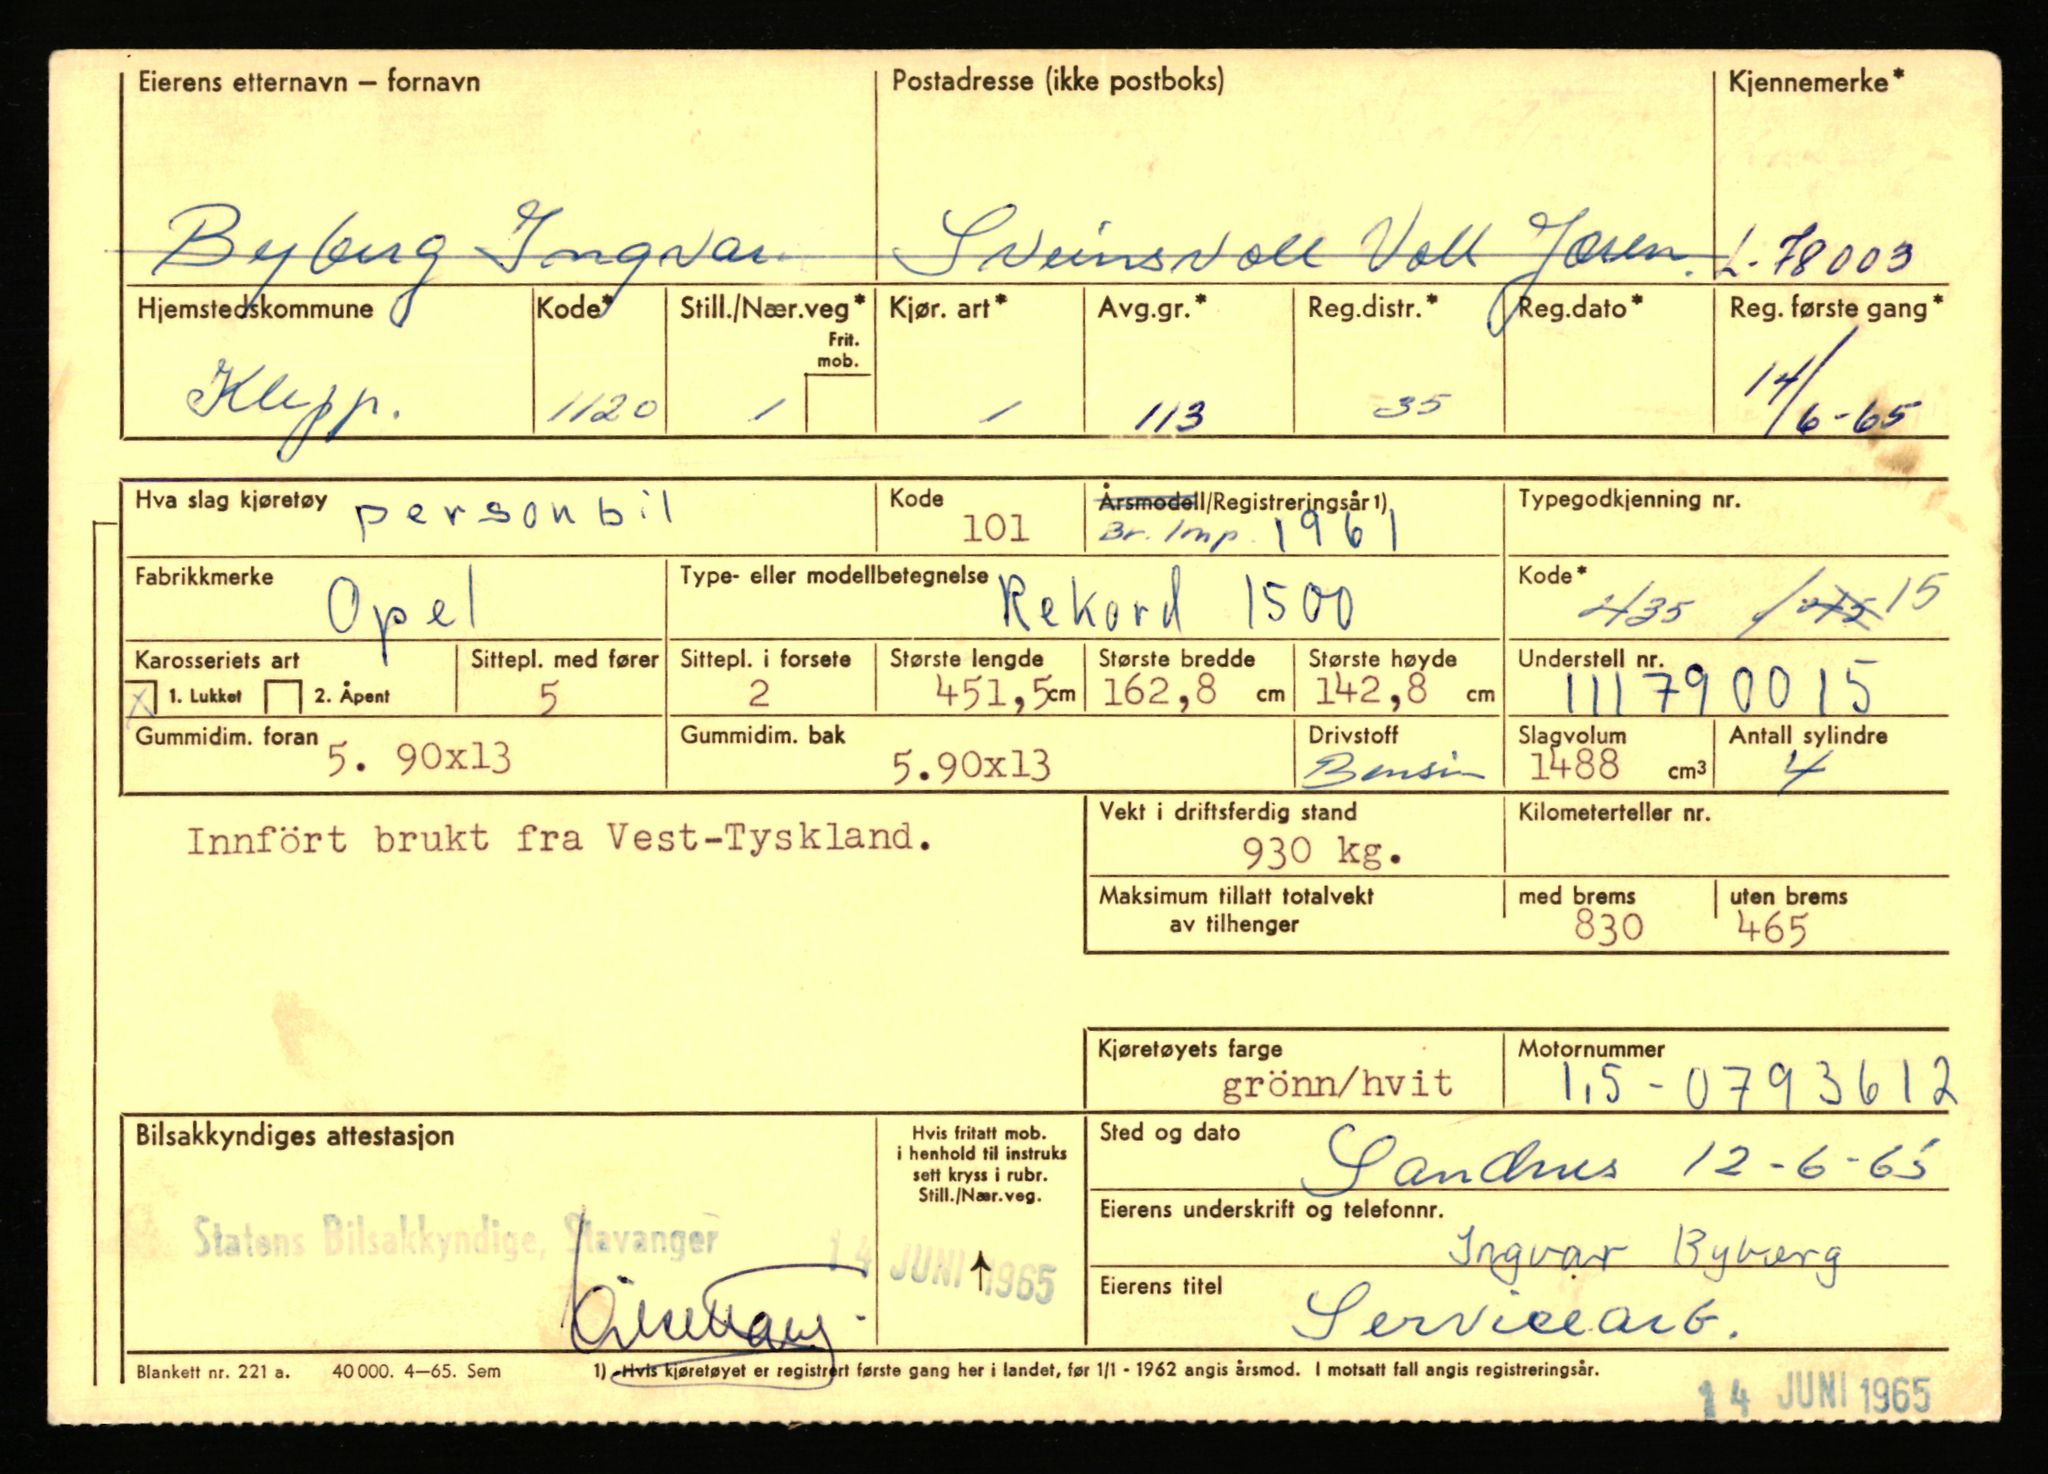 Eierens etternavn – fornavn Postadresse (ikke postboks) Kjennemerke*
Byberg Ingvar Sveinsvoll Voll Jæren. L-78003
Hjemstedskommune Kode* Still./Nær.veg* Kjør. art* Avg.gr.* Reg.distr.* Reg.dato* Reg. første gang*
Frit.
mob.
Klepp. 1120 1 1 113 35 14/6-65
Hva slag kjøretøy personbil Kode 101 Årsmodell/Registreringsår 1) Br. Imp. 1961 Typegodkjenning nr.
Fabrikkmerke Opel Type- eller modellbetegnelse Rekord 1500 Kode* 435 15
Karosseriets art Sittepl. med fører Sittepl. i forsete Største lengde Største bredde Største høyde Understell nr.
X 1. Lukket 2. Åpent 5 2 451,5 cm 162,8 cm 142,8 cm 111790015
Gummidim. foran Gummidim. bak Drivstoff Slagvolum Antall sylindre
5. 90x13 5.90x13 Bensin 1488 cm3 4
Vekt i driftsferdig stand Kilometerteller nr.
Innfört brukt fra Vest-Tyskland. 930 kg.
Maksimum tillatt totalvekt med brems uten brems
av tilhenger 830 465
Kjøretøyets farge Motornummer
grönn/hvit 1,5-0793612
Bilsakkyndiges attestasjon
Hvis fritatt mob.
i henhold til instruks
sett kryss i rubr.
Still./Nær.veg.
Sted og dato Sandnes 12-6-65
Eierens underskrift og telefonnr.
Statens Bilsakkyndige, Stavanger 14 JUNI 1965
Ingvar Byberg
Eierens titel
Servicearb.
Blankett nr. 221 a. 40 000. 4–65. Sem 1) Hvis kjøretøyet er registrert første gang her i landet, før 1/1 - 1962 angis årsmod. I motsatt fall angis registreringsår.
14 JUNI 1965